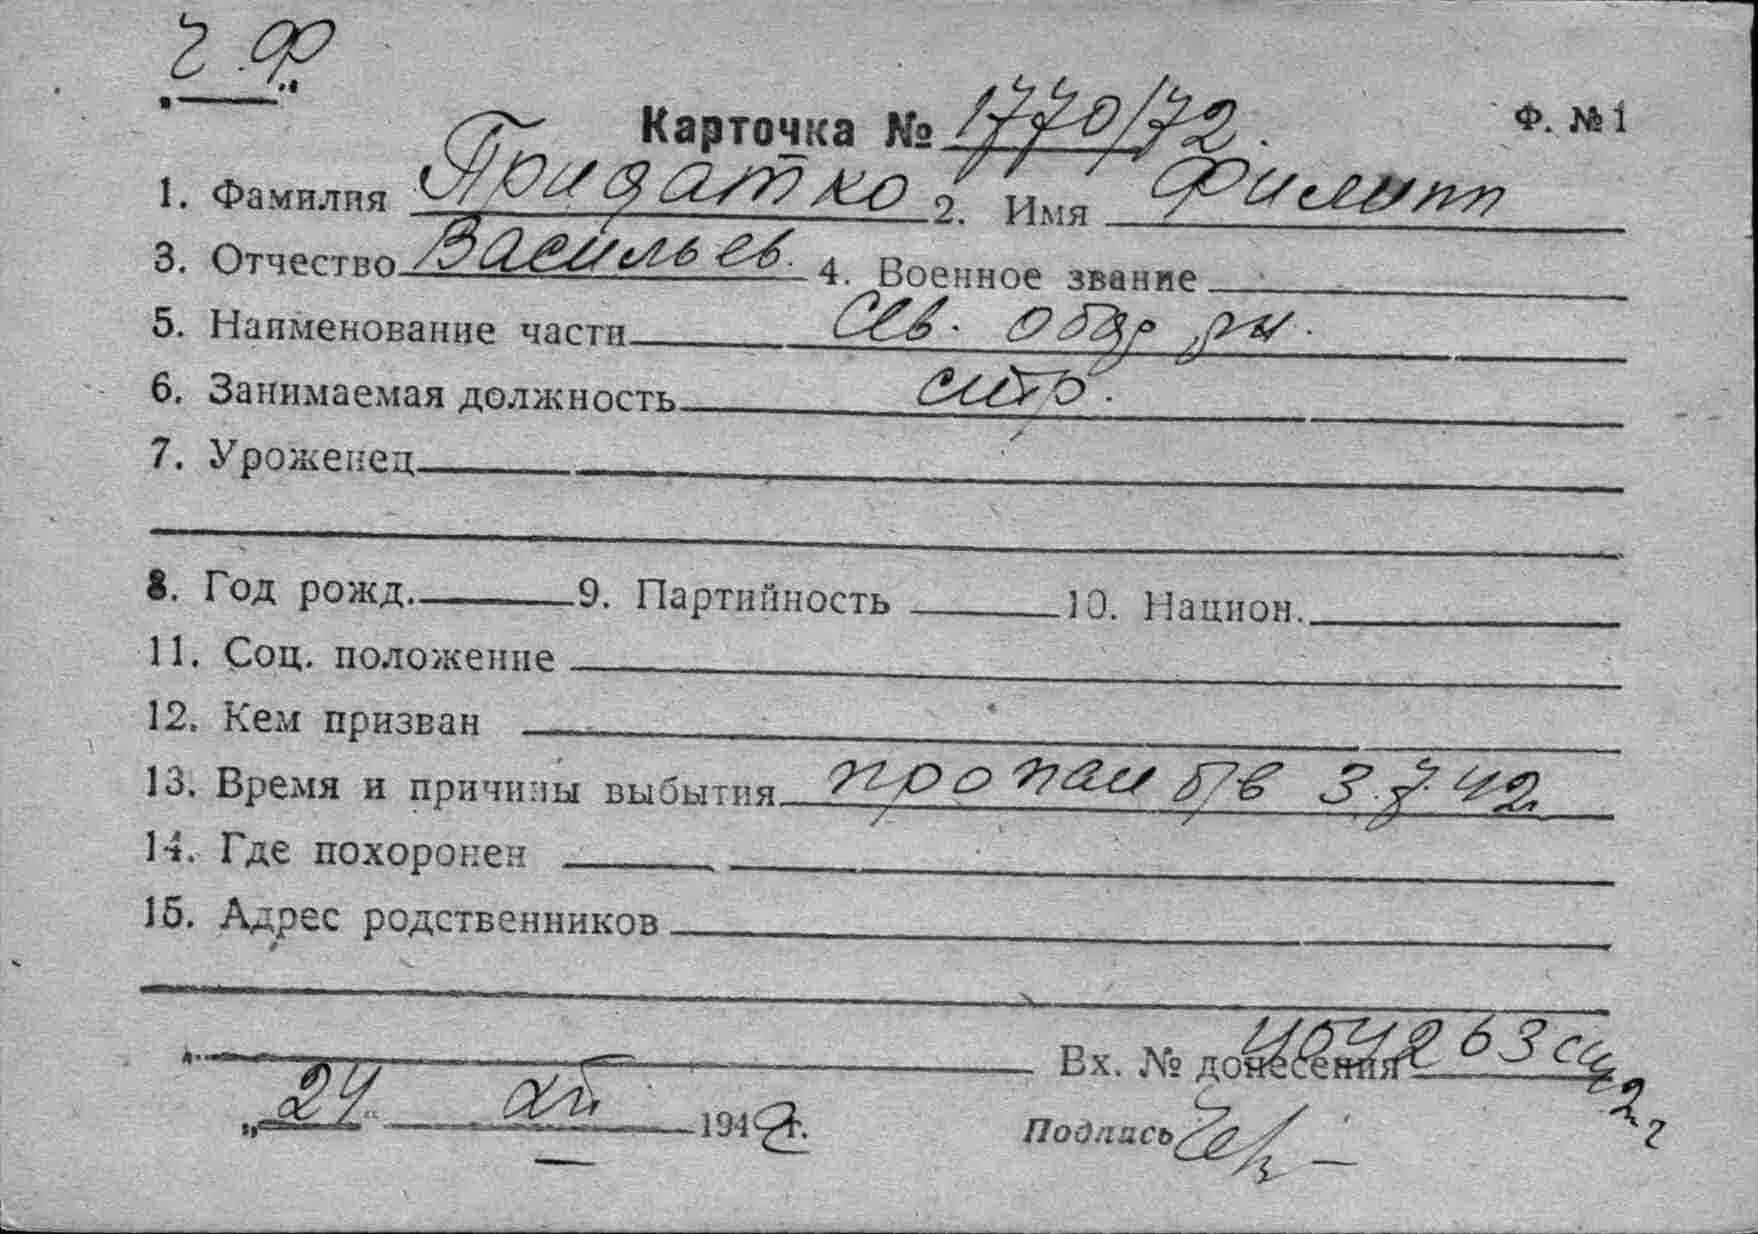 Ч.Ф.
Карточка № 1770/72. Ф. № 1
1. Фамилия Придатко 2. Имя Филипп
3. Отчество Васильев. 4. Военное звание
5. Наименование части Сев.
6. Занимаемая должность стр.
7. Уроженец
8. Год рожд. 9. Партийность 10. Национ.
11. Соц. положение
12. Кем призван
13. Время и причины выбытия пропал б/в 3.7.42
14. Где похоронен
15. Адрес родственников
Вх. № донесения
„24" 194 г. Подпись